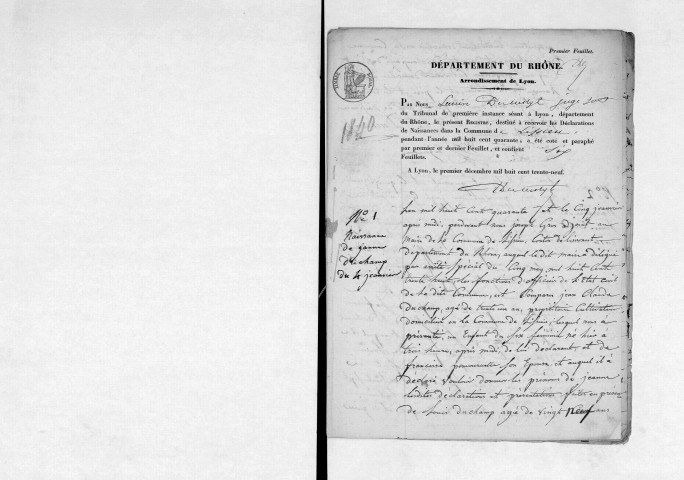 Premier Feuillet.
DÉPARTEMENT DU RHÔNE.
Arrondissement de Lyon.
1840
PAR NOUS, juge
du Tribunal de première instance séant à Lyon, département
du Rhône, le présent REGISTRE, destiné à recevoir les Déclarations
de Naissances dans la Commune d
pendant l'année mil huit cent quarante, a été coté et paraphé
par premier et dernier Feuillet, et contient Six
Feuillets.
A Lyon, le premier décembre mil huit cent trente-neuf.
N° 1
Naissance
de janne
du champ
du 4 janvier
Lan mil huit Cent quarante et le Cinq janvier
après midi, pardevant nous joseph Gros adjoint au
maire de la Commune de
département du Rhône, auquel le dit maire a délégué
par arrêté Spécial du Cinq may mil huit Cent
trente huit, les fonctions d'officier de l'Etat Civil
de la dite Commune, est Comparu jean Claude
Duchamp, agé de trente un an, propriétaire Cultivateur
domicilié en la Commune de lequel nous a
présenté un Enfant du Sex féminin né hier a
trois heures, après midi, de lui déclarant et de
francoise Son Epouse et auquel il a
déclaré vouloir donner les prénoms de jeanne
lesdites déclaration et présentation faites en présence
de Louis duchamp agé de vingt neuf ans